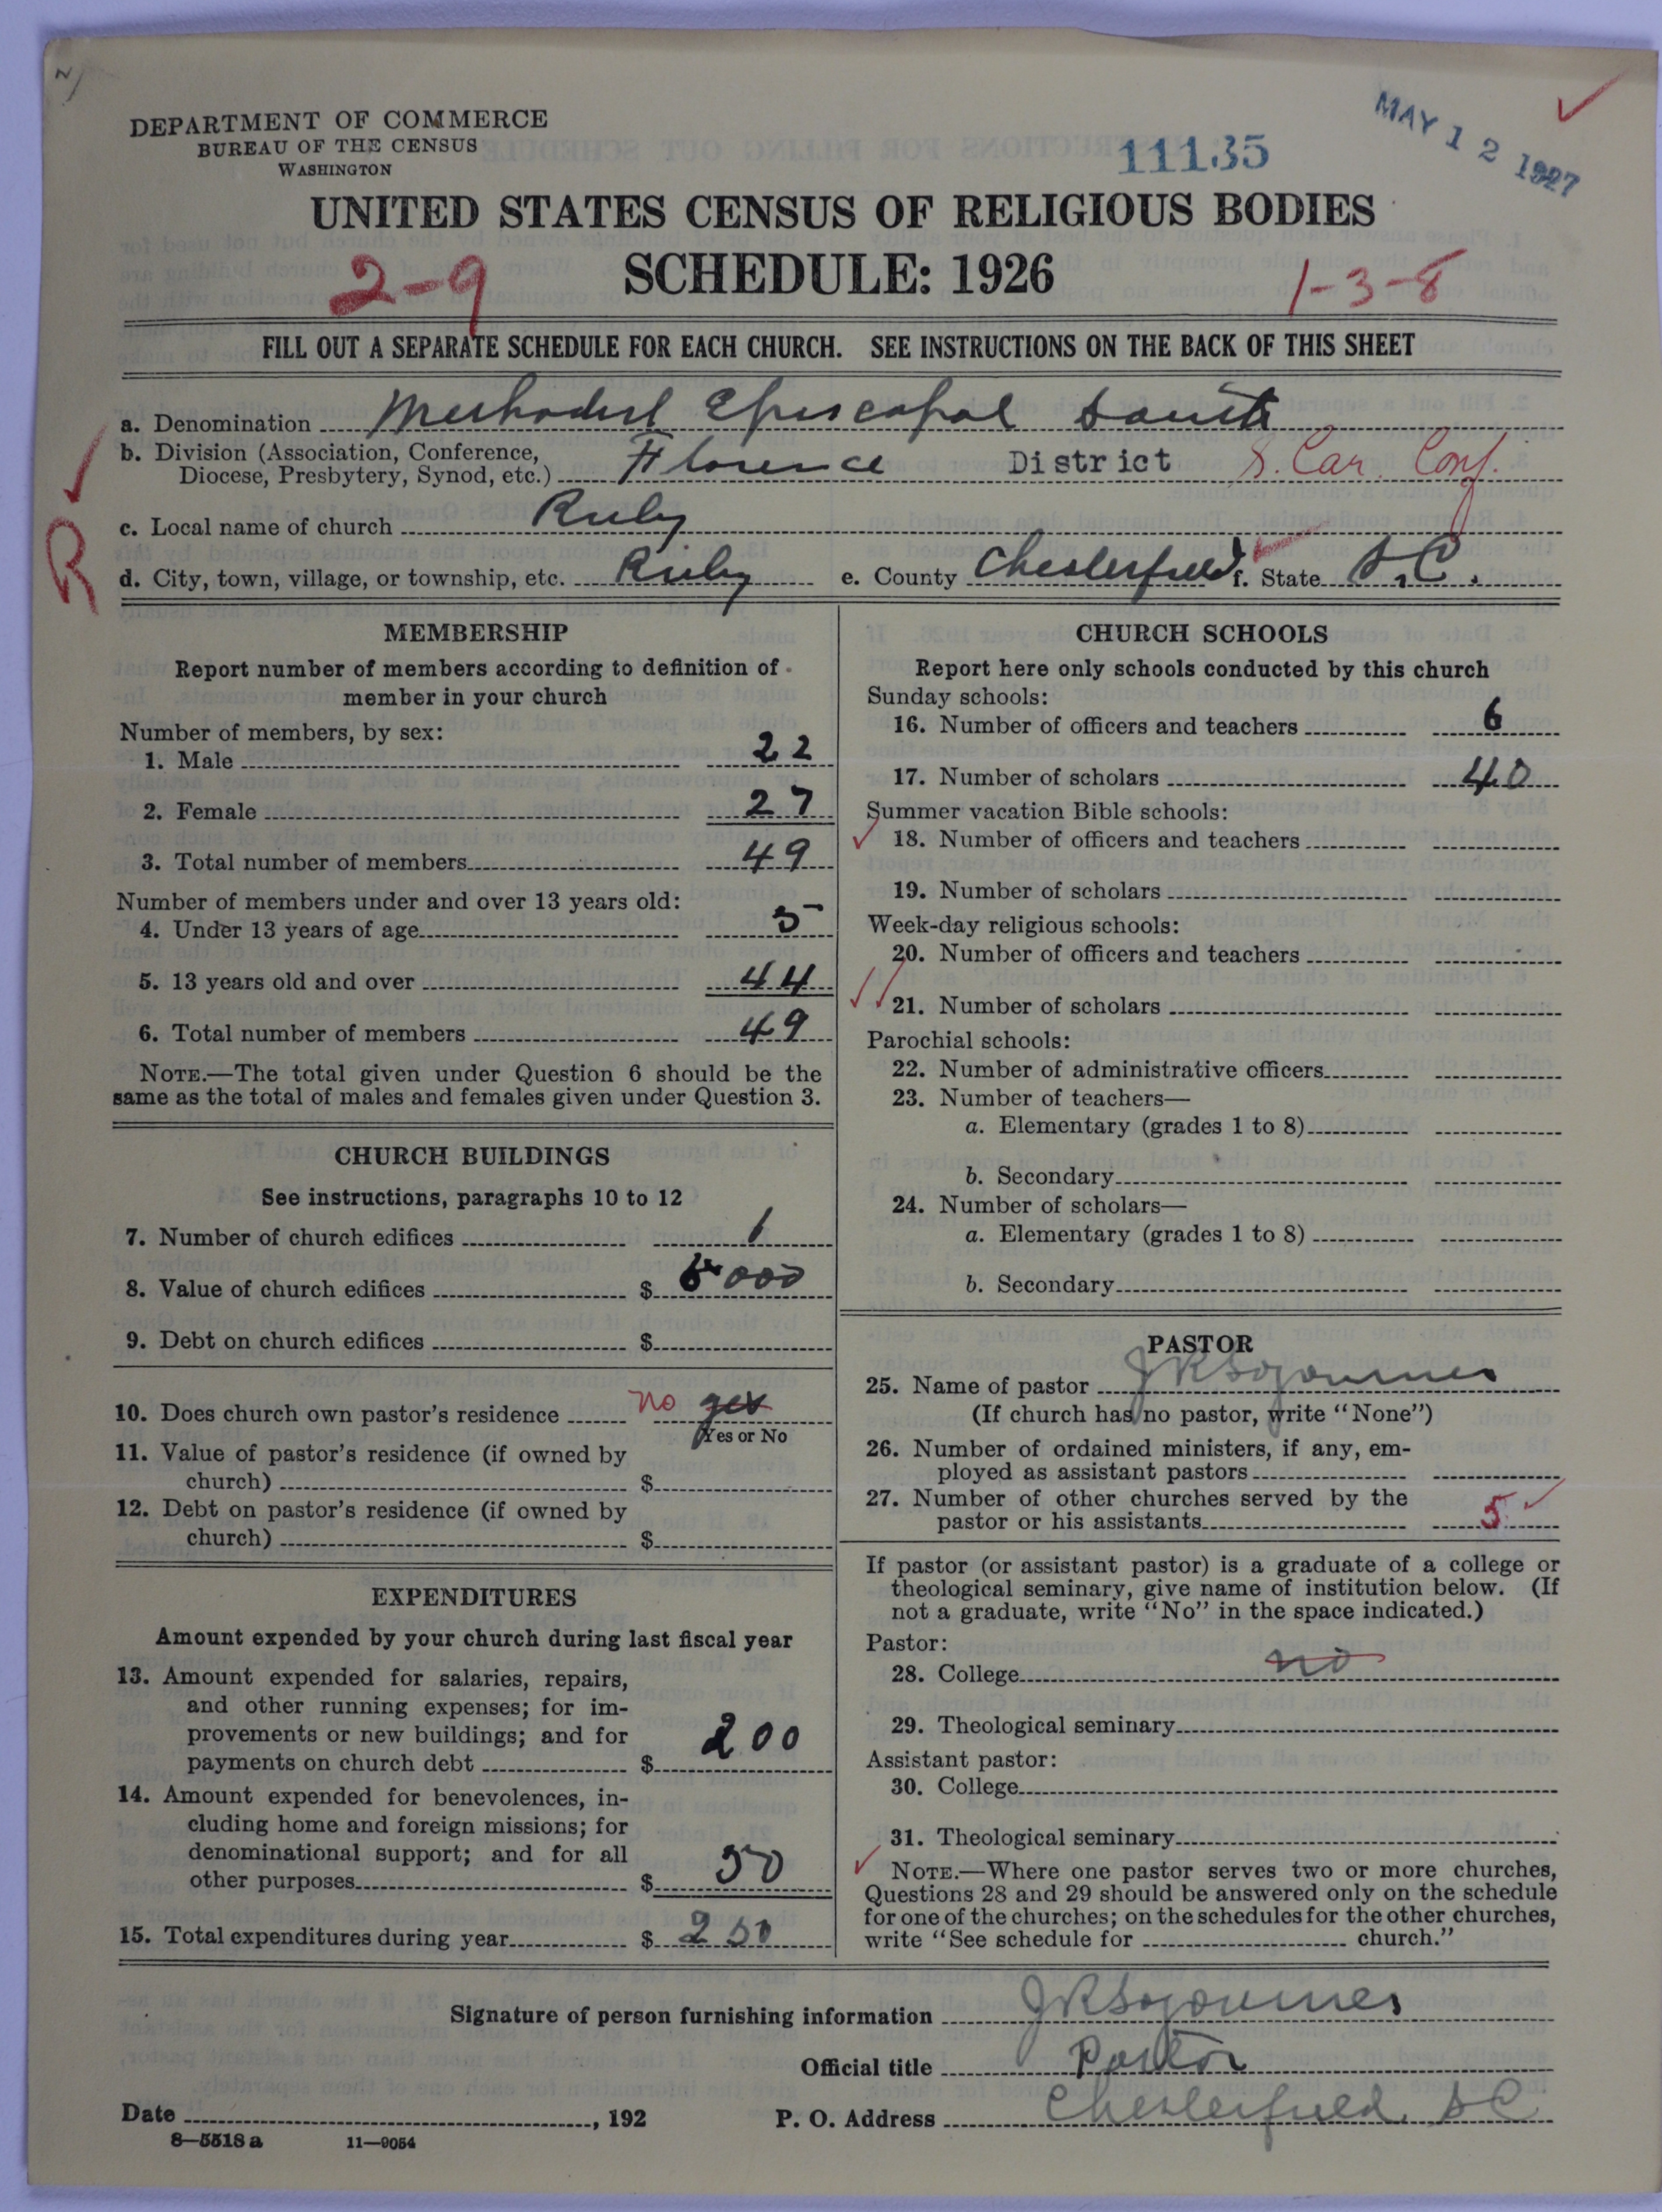 DEPARTMENT OF COMMERCE
BUREAU OF THE CENSUS
WASHINGTON
11135
MAY 12 1927
UNITED STATES CENSUS OF RELIGIOUS BODIES
2-9 SCHEDULE: 1926 1-3-8
FILL OUT A SEPARATE SCHEDULE FOR EACH CHURCH. SEE INSTRUCTIONS ON THE BACK OF THIS SHEET
a. Denomination Methodist Episcopal South
b. Division (Association, Conference,
Diocese, Presbytery, Synod, etc.) Florence District S. Car. Conf.
R
c. Local name of church Ruby
d. City, town, village, or township, etc. Ruby e. County Chesterfield f. State S.C.
MEMBERSHIP
Report number of members according to definition of
member in your church
Number of members, by sex:
1. Male 22
2. Female 27
3. Total number of members 49
Number of members under and over 13 years old:
4. Under 13 years of age 5
5. 13 years old and over 44
6. Total number of members 49
NOTE.—The total given under Question 6 should be the
same as the total of males and females given under Question 3.
CHURCH BUILDINGS
See instructions, paragraphs 10 to 12
7. Number of church edifices 1
8. Value of church edifices $ 000
9. Debt on church edifices $
10. Does church own pastor's residence no yes
Yes or No
11. Value of pastor's residence (if owned by
church) $
12. Debt on pastor's residence (if owned by
church) $
EXPENDITURES
Amount expended by your church during last fiscal year
13. Amount expended for salaries, repairs,
and other running expenses; for im-
provements or new buildings; and for
payments on church debt $ 200
14. Amount expended for benevolences, in-
cluding home and foreign missions; for
denominational support; and for all
other purposes $ 50
15. Total expenditures during year $ 250
CHURCH SCHOOLS
Report here only schools conducted by this church
Sunday schools:
16. Number of officers and teachers 6
17. Number of scholars 40
Summer vacation Bible schools:
18. Number of officers and teachers
19. Number of scholars
Week-day religious schools:
20. Number of officers and teachers
21. Number of scholars
Parochial schools:
22. Number of administrative officers
23. Number of teachers—
a. Elementary (grades 1 to 8)
b. Secondary
24. Number of scholars—
a. Elementary (grades 1 to 8)
b. Secondary
PASTOR
25. Name of pastor J R Sojourner
(If church has no pastor, write "None")
26. Number of ordained ministers, if any, em-
ployed as assistant pastors
27. Number of other churches served by the
pastor or his assistants 5
If pastor (or assistant pastor) is a graduate of a college or
theological seminary, give name of institution below. (If
not a graduate, write "No" in the space indicated.)
Pastor:
28. College no
29. Theological seminary
Assistant pastor:
30. College
31. Theological seminary
NOTE.—Where one pastor serves two or more churches,
Questions 28 and 29 should be answered only on the schedule
for one of the churches; on the schedules for the other churches,
write "See schedule for church."
Signature of person furnishing information J R Sojourner
Official title Pastor
Date , 192 P. O. Address Chesterfield SC
8—5518 a 11—9054